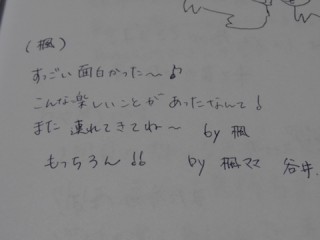 (楓)
すっごい面白かった〜♪
こんな楽しいことがあったなんて!
また連れてきてね〜 by 楓
もっちろん!! by 楓ママ 谷井.